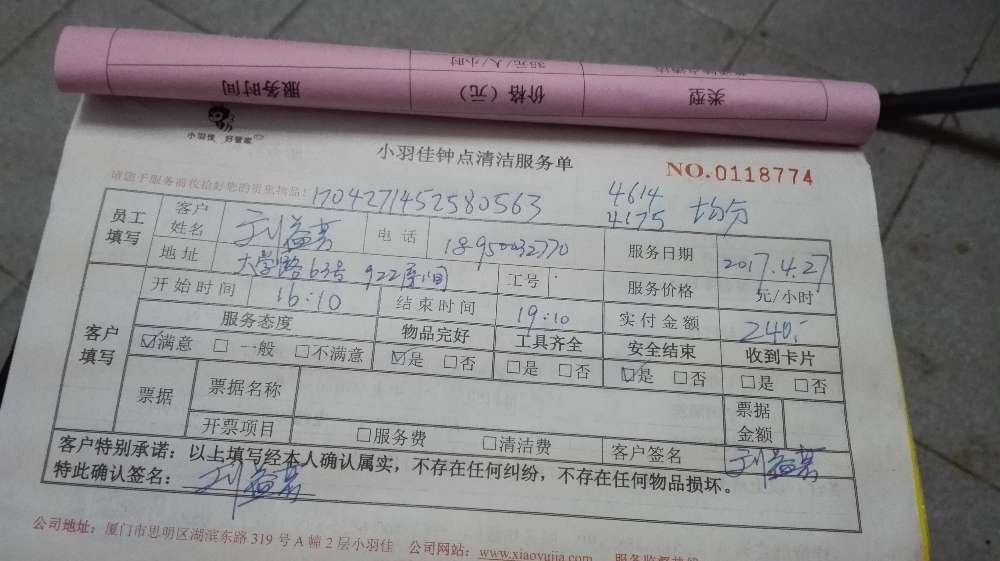 服务时间 价格（元） 类型
35元/人/小时
小羽佳 好管家
小羽佳钟点清洁服务单
NO.0118774
请您于服务前收拾好您的贵重物品：1704271452580563
4614
4175 均分
员工填写 客户姓名 电话 18950032770 服务日期 2017.4.27
地址 大学路63号 922房间 工号 服务价格 元/小时
客户填写 开始时间 16:10 结束时间 19:10 实付金额 240.-
服务态度 物品完好 工具齐全 安全结束 收到卡片
☑满意 □一般 □不满意 ☑是 □否 □是 □否 ☑是 □否 □是 □否
票据 票据名称 票据金额
开票项目 □服务费 □清洁费 客户签名
客户特别承诺：以上填写经本人确认属实，不存在任何纠纷，不存在任何物品损坏。
特此确认签名：
公司地址：厦门市思明区湖滨东路319号A幢2层小羽佳 公司网站：www.xiaoyujia.com 服务监督热线